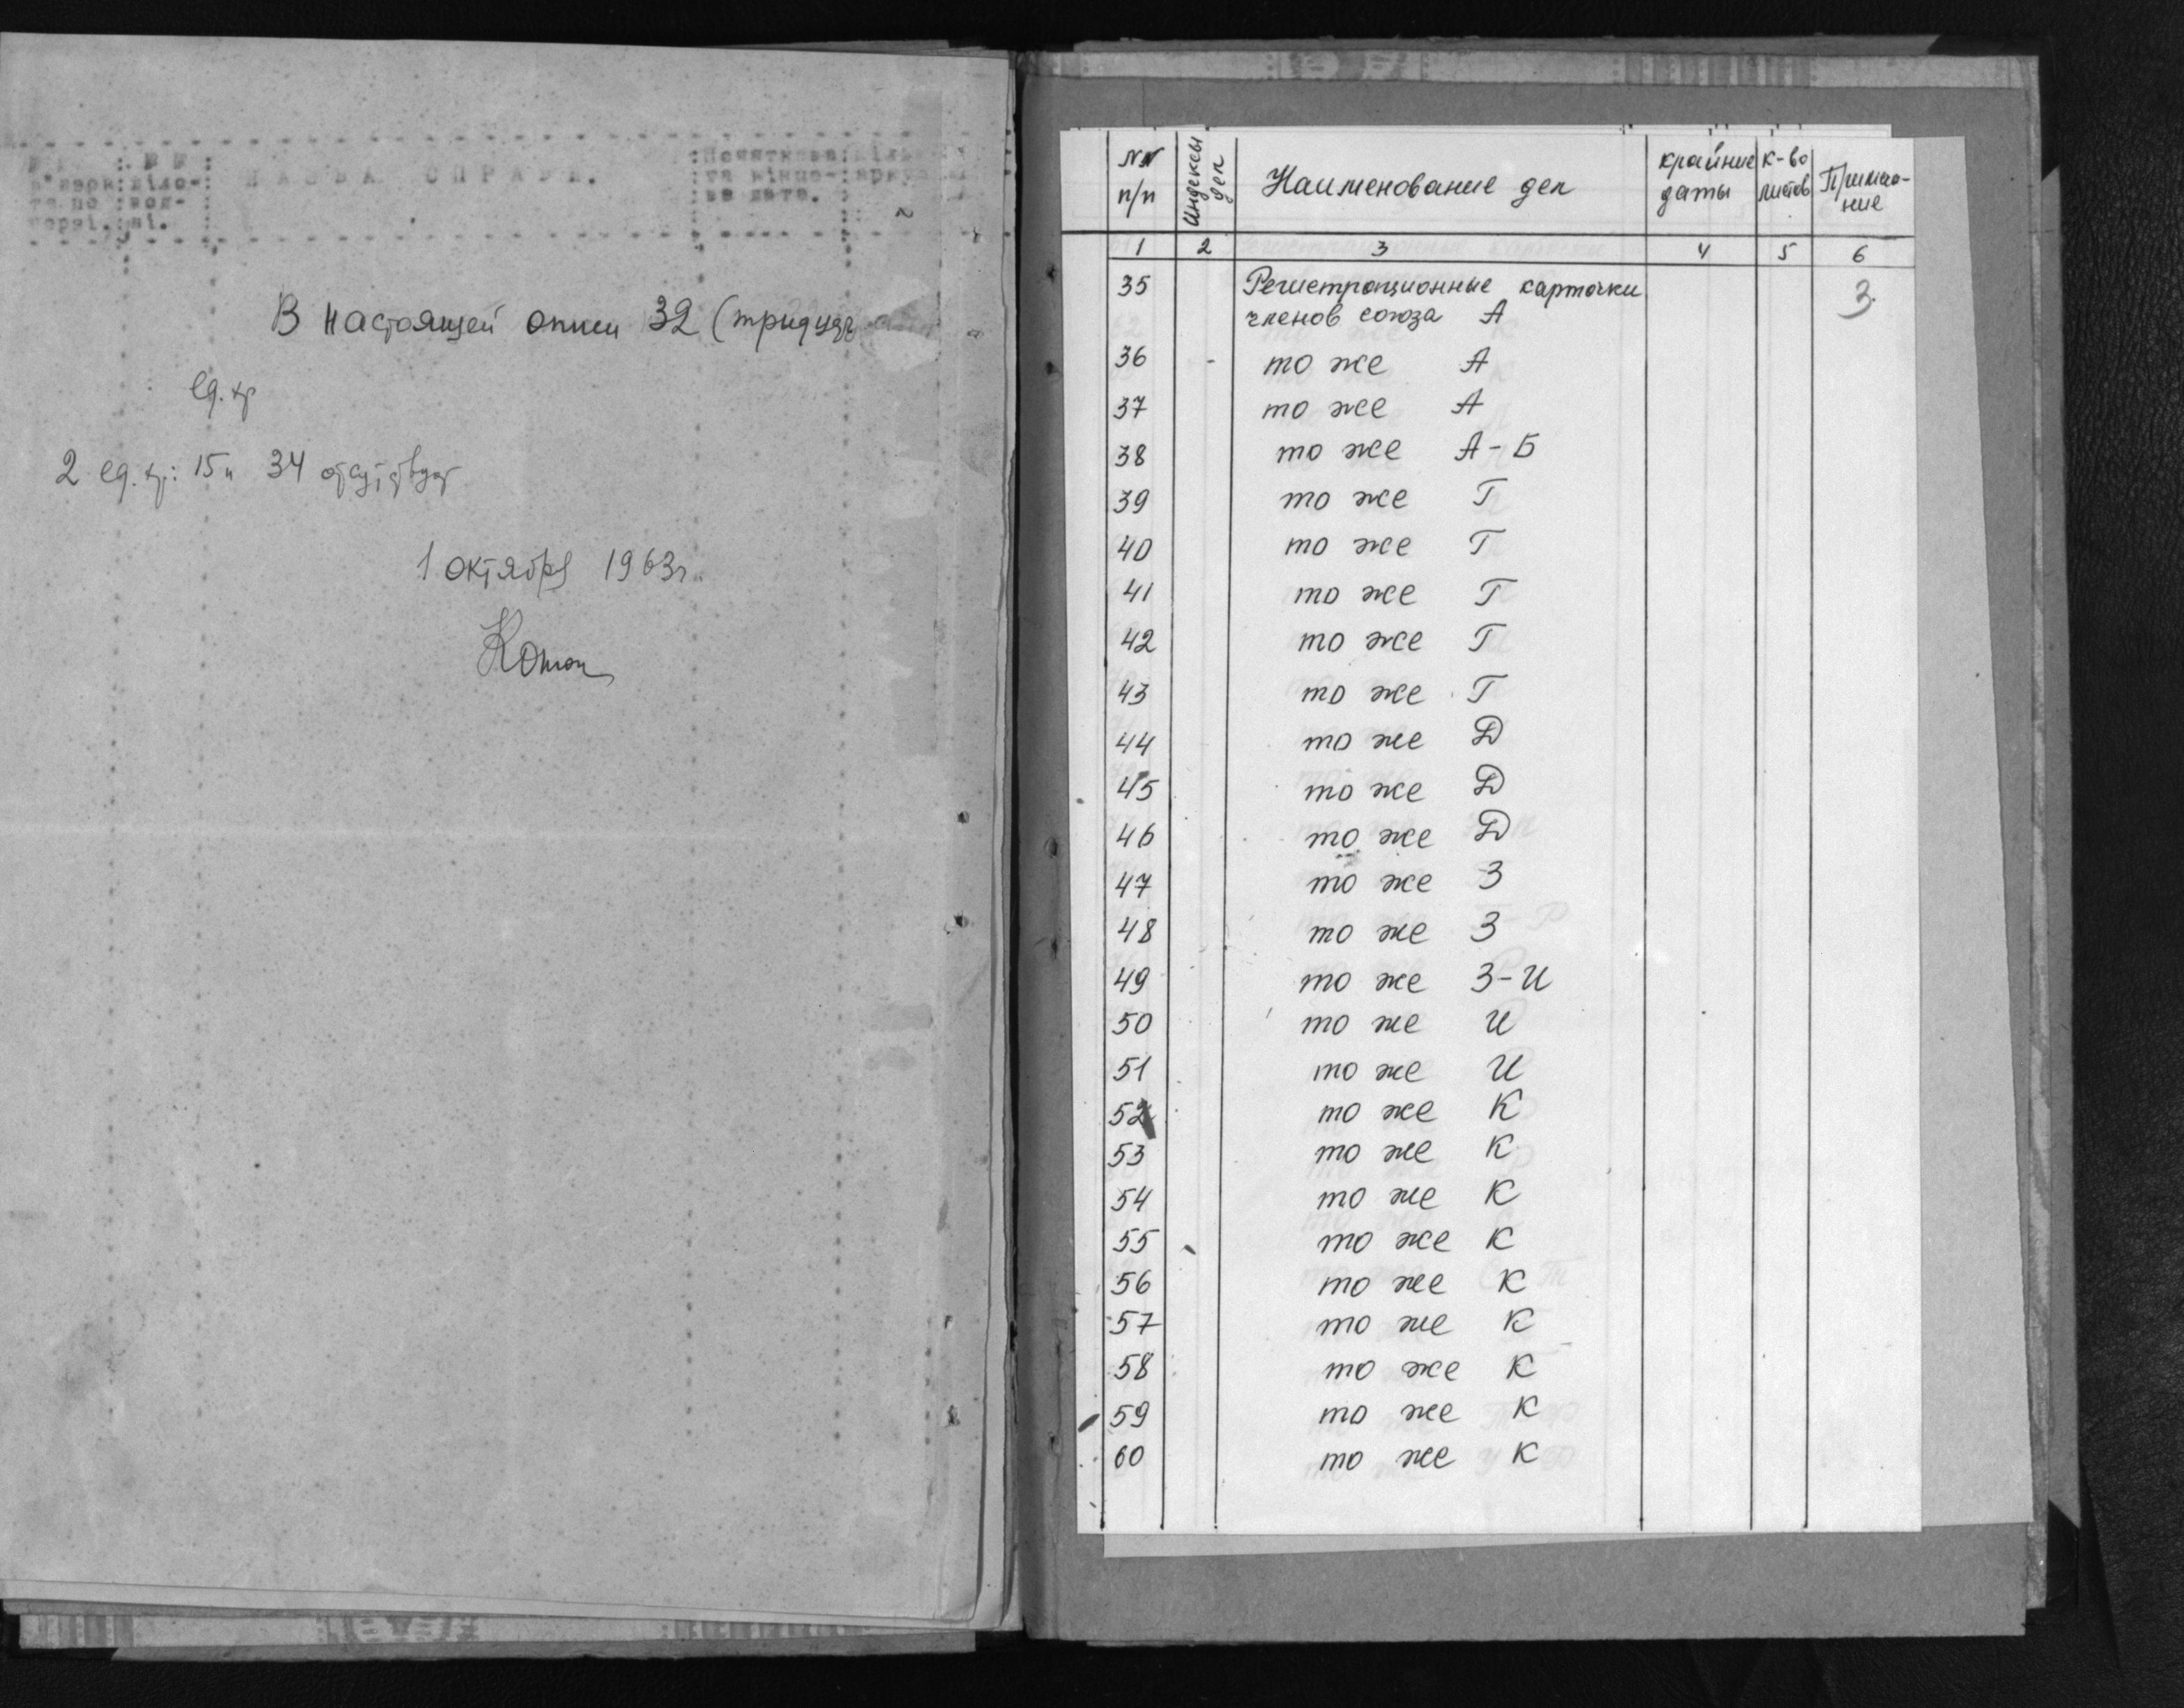 НАЗВА СПРАВИ.
В настоящей описи 32 (тридцать
ед. хр
2 ед. хр: 15 и 34 отсутствуют
1 октября 1963г.
NN п/п
Индексы дел
Наименование дел
крайние даты
к-во листов
Примеч-ние
1 2 3 4 5 6
35 Регистрационные карточки 3.
членов союза А
36 - то же А
37 то же А
38 то же А-Б
39 то же Г
40 то же Г
41 то же Г
42 то же Г
43 то же Г
44 то же Д
45 то же Д
46 то же Д
47 то же З
48 то же З
49 то же З-И
50 то же И
51 то же И
52 то же К
53 то же К
54 то же К
55 то же К
56 то же К
57 то же К
58 то же К
59 то же К
60 то же К